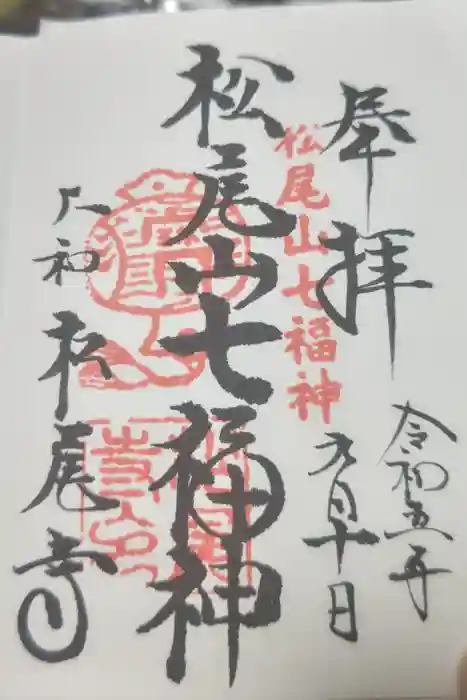 奉拝
令和五年
九月十日
松尾山七福神
松尾山七福神
大和
松尾寺